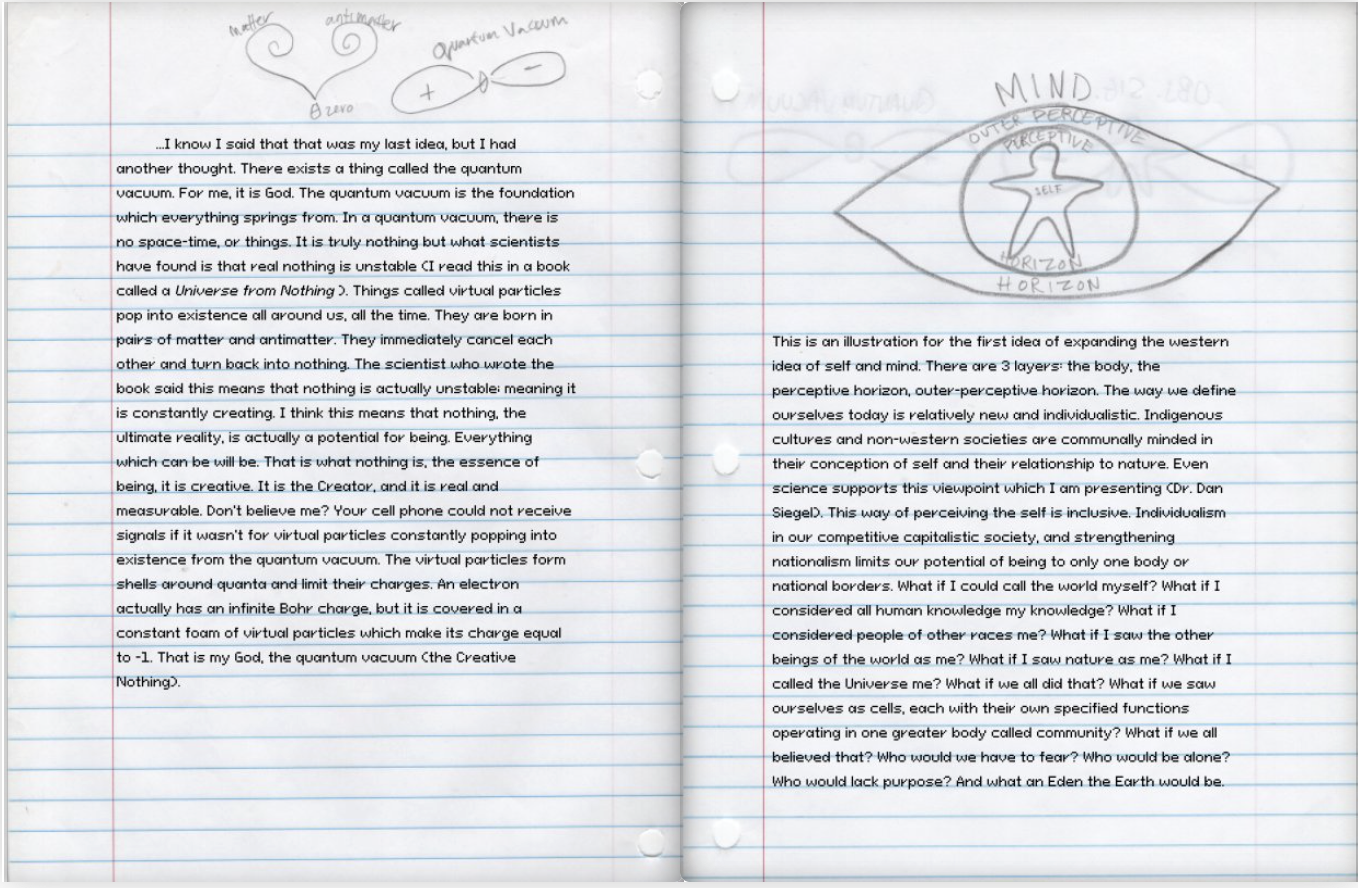 matter
antimatter
Quantum Vacuum
+
-
zero
...I know I said that that was my last idea, but I had
another thought. There exists a thing called the quantum
vacuum. For me, it is God. The quantum vacuum is the foundation
which everything springs from. In a quantum vacuum, there is
no space-time, or things. It is truly nothing but what scientists
have found is that real nothing is unstable (I read this in a book
called a Universe from Nothing ). Things called virtual particles
pop into existence all around us, all the time. They are born in
pairs of matter and antimatter. They immediately cancel each
other and turn back into nothing. The scientist who wrote the
book said this means that nothing is actually unstable; meaning it
is constantly creating. I think this means that nothing, the
ultimate reality, is actually a potential for being. Everything
which can be will be. That is what nothing is, the essence of
being, it is creative. It is the Creator, and it is real and
measurable. Don't believe me? Your cell phone could not receive
signals if it wasn't for virtual particles constantly popping into
existence from the quantum vacuum. The virtual particles form
shells around quanta and limit their charges. An electron
actually has an infinite Bohr charge, but it is covered in a
constant foam of virtual particles which make its charge equal
to -1. That is my God, the quantum vacuum (the Creative
Nothing).
MIND
OUTER PERCEPTIVE
PERCEPTIVE
SELF
HORIZON
HORIZON
This is an illustration for the first idea of expanding the western
idea of self and mind. There are 3 layers: the body, the
perceptive horizon, outer-perceptive horizon. The way we define
ourselves today is relatively new and individualistic. Indigenous
cultures and non-western societies are communally minded in
their conception of self and their relationship to nature. Even
science supports this viewpoint which I am presenting (Dr. Dan
Siegel). This way of perceiving the self is inclusive. Individualism
in our competitive capitalistic society, and strengthening
nationalism limits our potential of being to only one body or
national borders. What if I could call the world myself? What if I
considered all human knowledge my knowledge? What if I
considered people of other races me? What if I saw the other
beings of the world as me? What if I saw nature as me? What if I
called the Universe me? What if we all did that? What if we saw
ourselves as cells, each with their own specified functions
operating in one greater body called community? What if we all
believed that? Who would we have to fear? Who would be alone?
Who would lack purpose? And what an Eden the Earth would be.